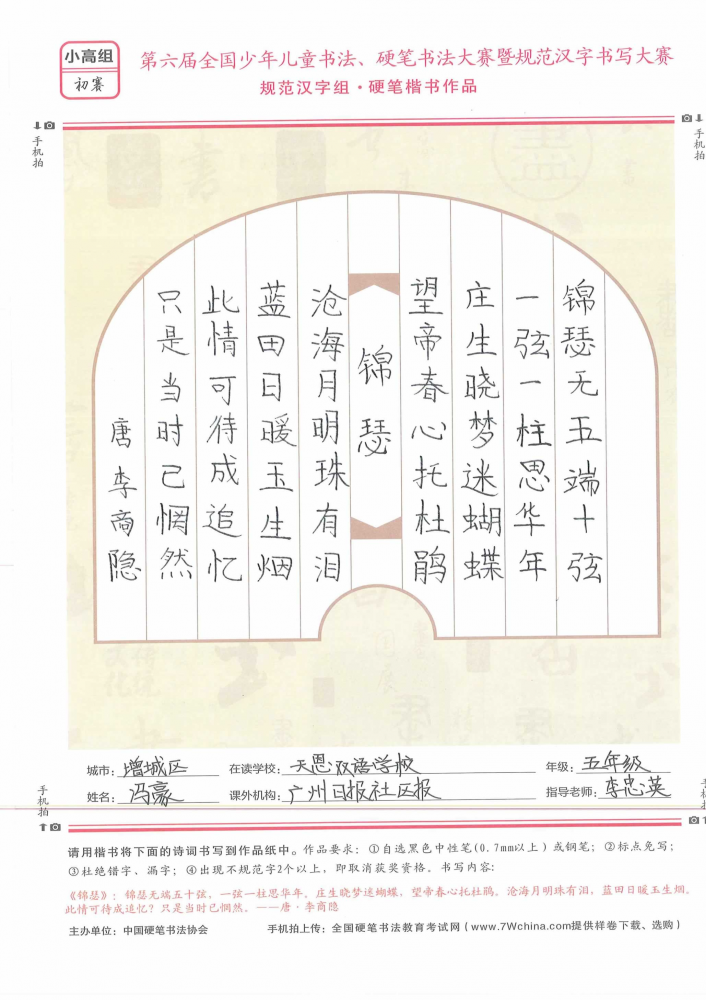 小高组
初赛
第六届全国少年儿童书法、硬笔书法大赛暨规范汉字书写大赛
规范汉字组·硬笔楷书作品
手机拍
手机拍
锦瑟无五端十弦
一弦一柱思华年
庄生晓梦迷蝴蝶
望帝春心托杜鹃
锦瑟
沧海月明珠有泪
蓝田日暖玉生烟
此情可待成追忆
只是当时已惘然
唐李商隐
城市：增城区 在读学校：天恩双语学校 年级：五年级
姓名：冯豪 课外机构：广州日报社区报 指导老师：李忠英
手机拍
请用楷书将下面的诗词书写到作品纸中。作品要求：①自选黑色中性笔(0.7mm以上)或钢笔；②标点免写；
③杜绝错字、漏字；④出现不规范字2个以上，即取消获奖资格。书写内容：
《锦瑟》：锦瑟无端五十弦，一弦一柱思华年。庄生晓梦迷蝴蝶，望帝春心托杜鹃。沧海月明珠有泪，蓝田日暖玉生烟。
此情可待成追忆？只是当时已惘然。——唐·李商隐
主办单位：中国硬笔书法协会 手机拍上传：全国硬笔书法教育考试网（www.7Wchina.com提供样卷下载、选购）